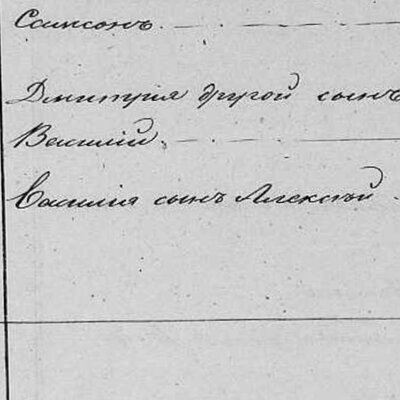 Самсонъ. — — —
Дмитрія другой сынъ
Василій. — — —
Василія сынъ Алексѣй.